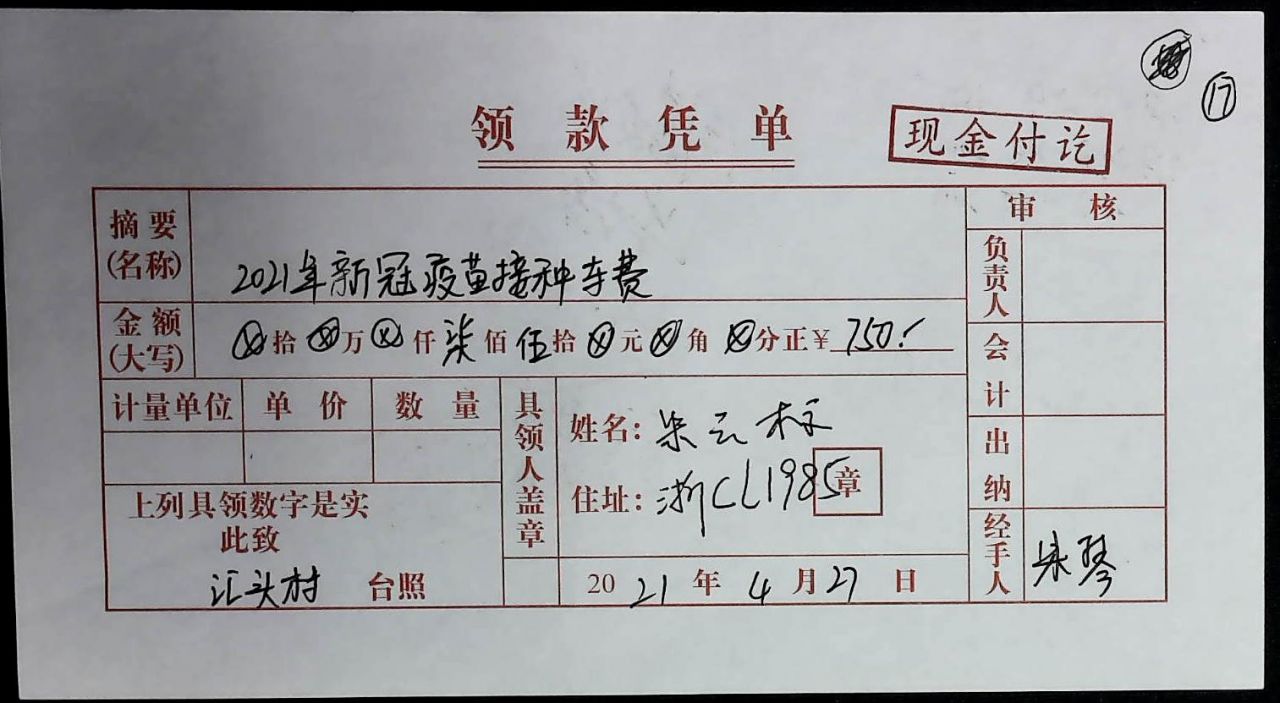 17
领款凭单
现金付讫
摘要(名称)
2021年新冠疫苗接种车费
金额(大写)
⊗拾⊗万⊗仟柒佰伍拾⊗元⊗角⊗分正¥750.
计量单位 单价 数量
上列具领数字是实
此致
汇头村 台照
具领人盖章
姓名:朱云标
住址:浙CL1985
章
2021年4月27日
审核
负责人
会计
出纳
经手人 朱琴